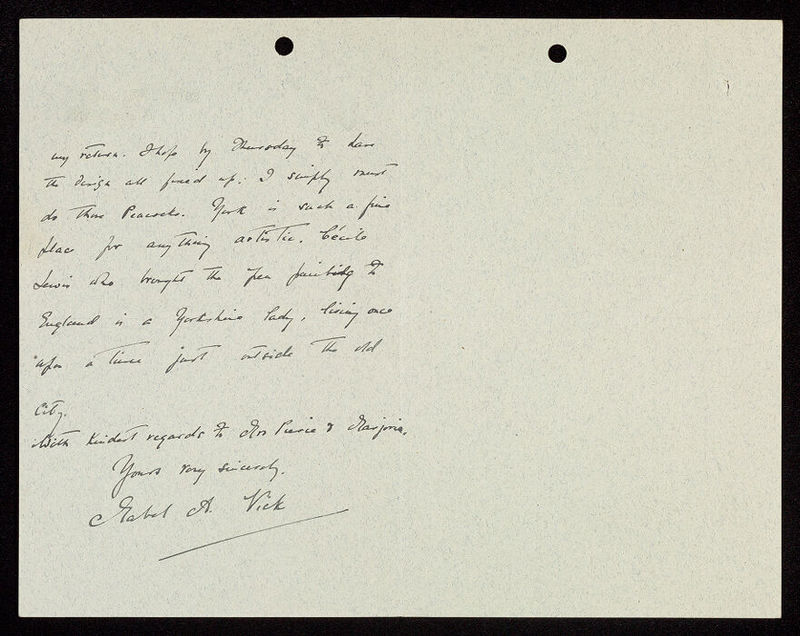 my return. I hope by Thursday to have
the design all fixed up: I simply must
do those Peacocks. York is such a fine
place for anything artistic. Cécile
Lewis who brought the pen painting to
England is a Yorkshire lady, living once
upon a time just outside the old
City.
With kindest regards to Mrs Pierce & Marjorie.
Yours very sincerely.
Mabel A. Vick